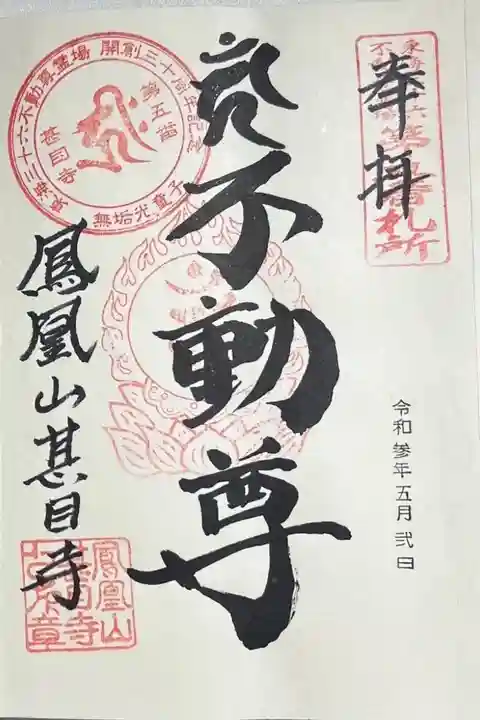 奉拝
不動尊
令和参年五月弐日
鳳凰山甚目寺
東海三十六不動尊霊場 開創三十周年記念
第五番
甚目寺
無垢光童子
鳳凰山
甚目寺